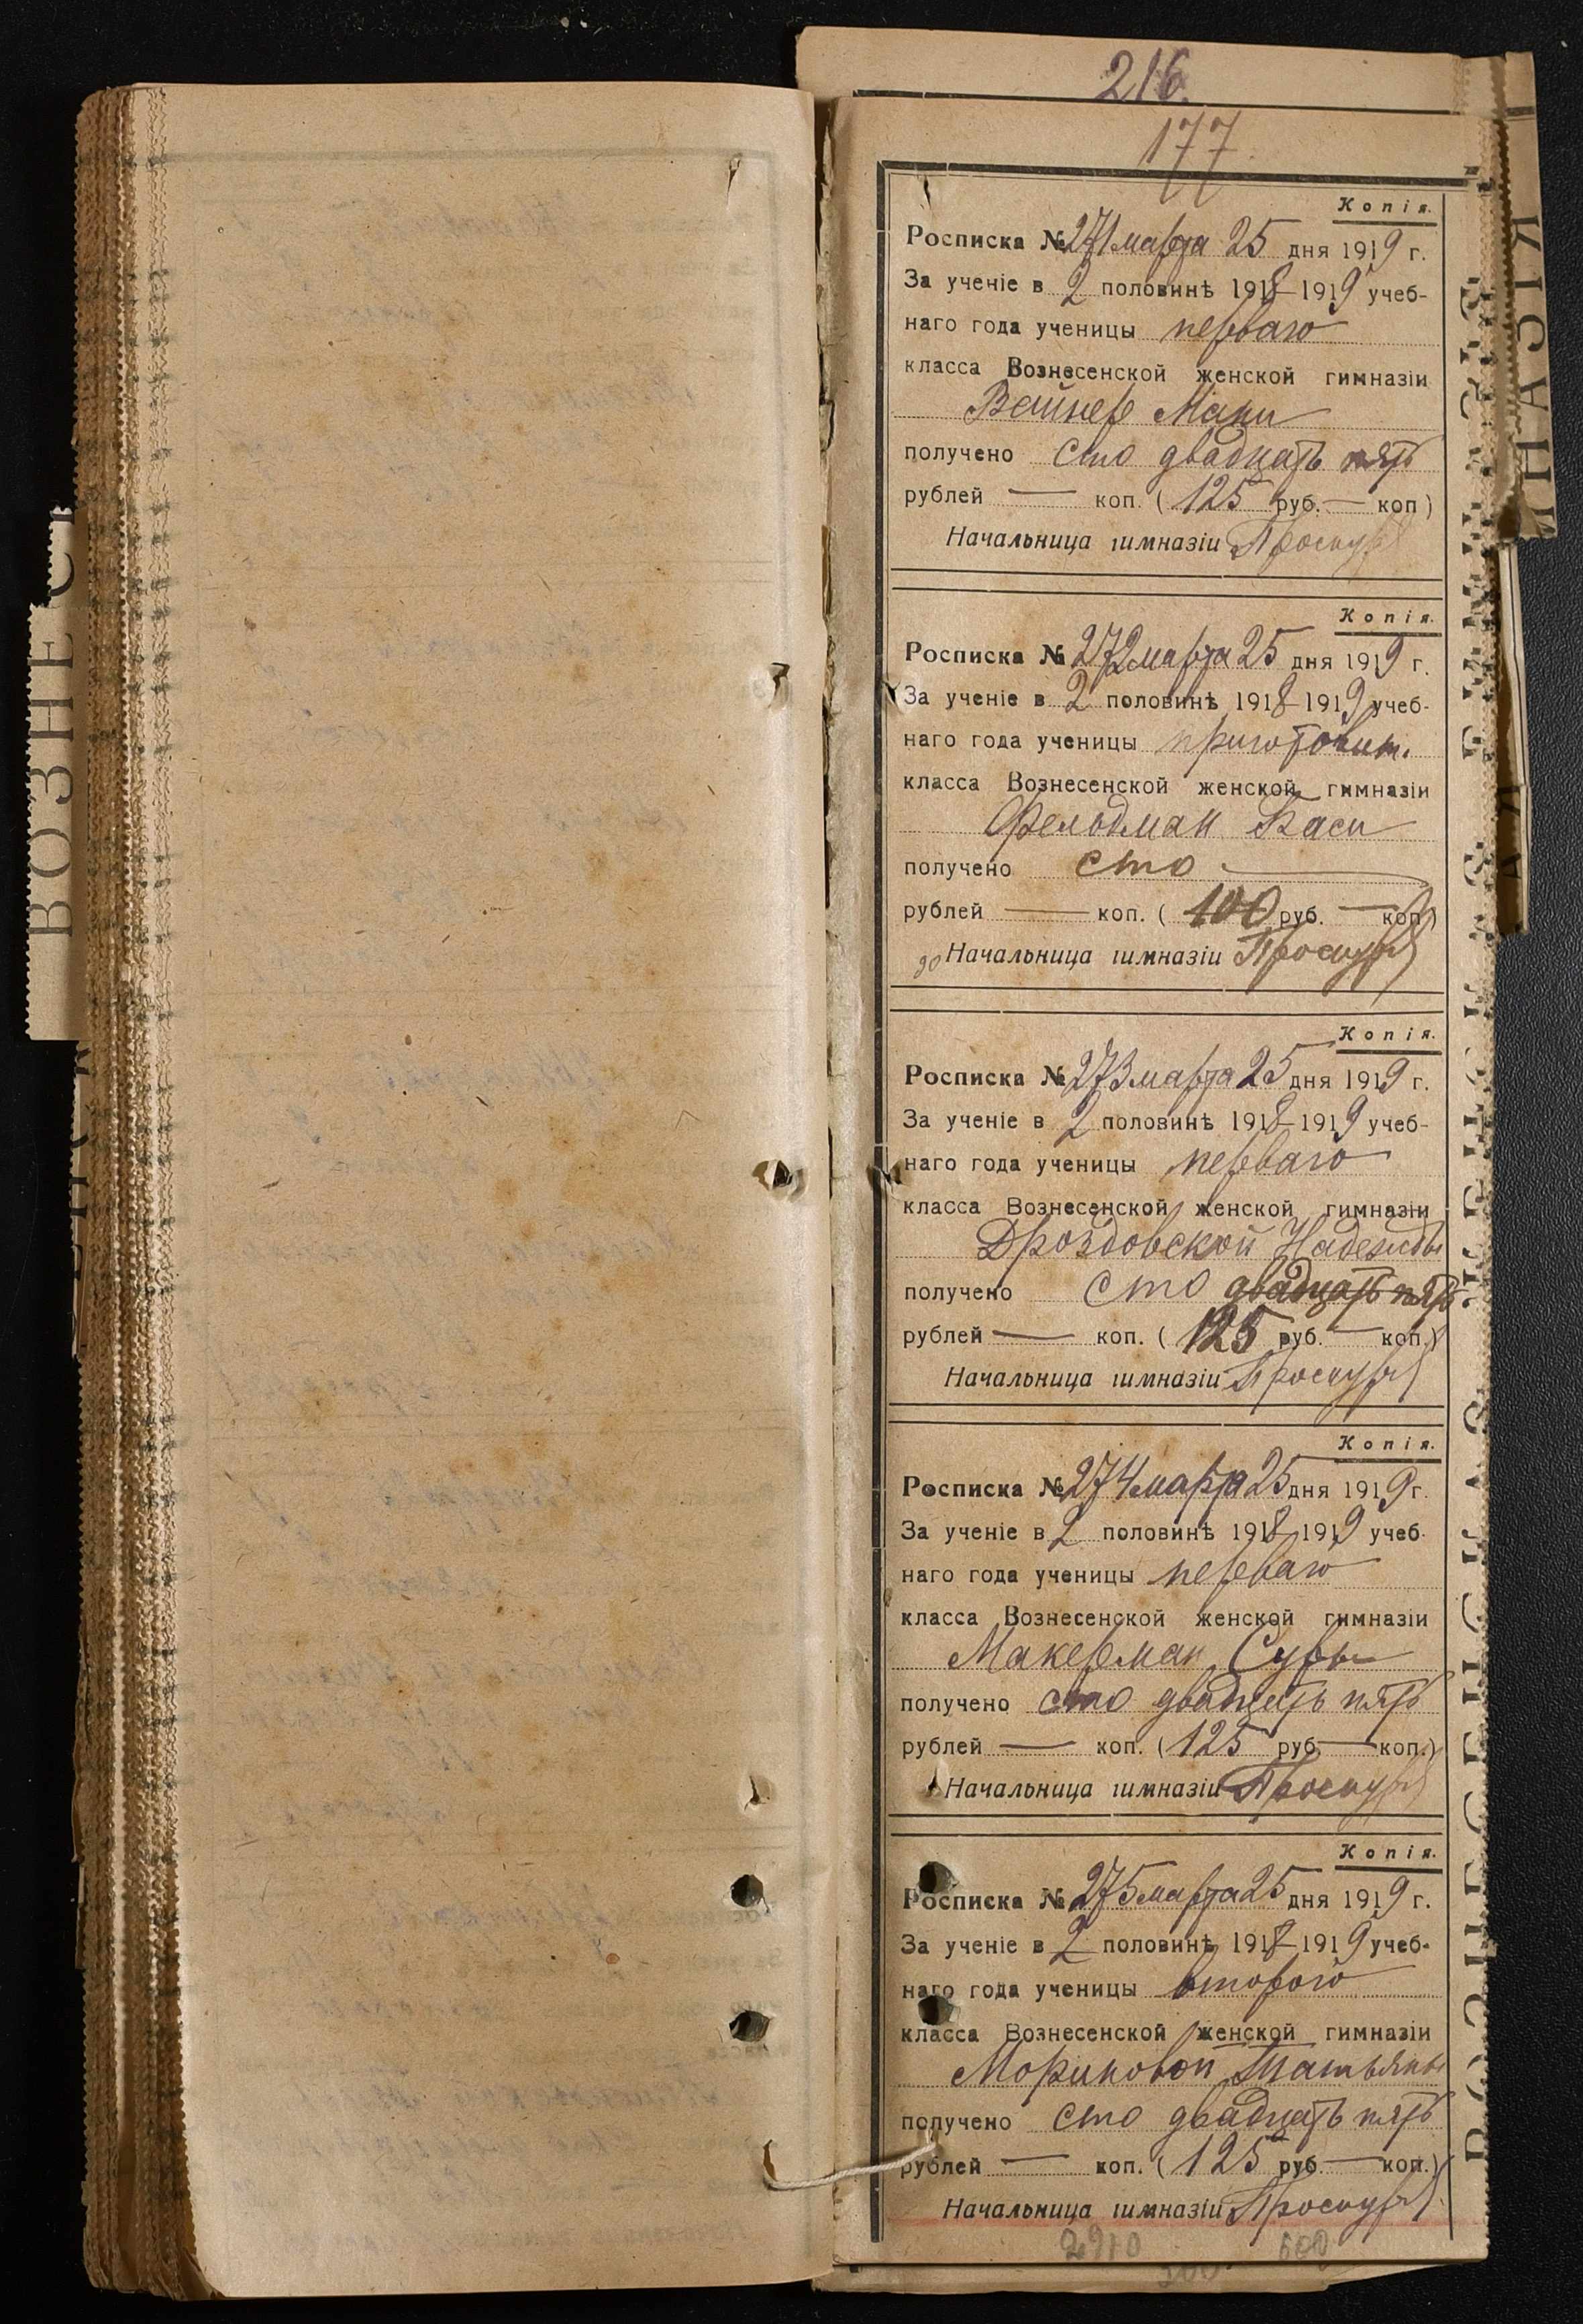 216.
177
Копія.
Росписка № 271 марта 25 дня 1919 г.
За ученіе в 2 половинѣ 1918-1919 учеб-
наго года ученицы перваго
класса Вознесенской женской гимназіи
Вайнер Мани
получено сто двадцать пять
рублей — коп. (125 руб. — коп)
Начальница гимназіи
Копія.
Росписка № 272 марта 25 дня 1919 г.
За ученіе в 2 половинѣ 1918-1919 учеб-
наго года ученицы приготовит.
класса Вознесенской женской гимназіи
Фельдман Хаси
получено сто —
рублей — коп. (100 руб. — коп)
Начальница гимназіи
Копія.
Росписка № 273 марта 25 дня 1919 г.
За ученіе в 2 половинѣ 1918-1919 учеб-
наго года ученицы перваго
класса Вознесенской женской гимназіи
Дроздовской Надежды
получено сто двадцать пять
рублей — коп. (125 руб. — коп.)
Начальница гимназіи
Копія.
Росписка № 274 марта 25 дня 1919 г.
За ученіе в 2 половинѣ 1918-1919 учеб-
наго года ученицы перваго
класса Вознесенской женской гимназіи
Макерман Суры
получено сто двадцать пять
рублей — коп. (125 руб — коп.)
Начальница гимназіи
Копія.
Росписка № 275 марта 25 дня 1919 г.
За ученіе в 2 половинѣ 1918-1919 учеб-
наго года ученицы второго
класса Вознесенской женской гимназіи
Мориновой Татьяны
получено сто двадцать пять
рублей — коп. (125 руб — коп.)
Начальница гимназіи
2910 600
ВОЗНЕС